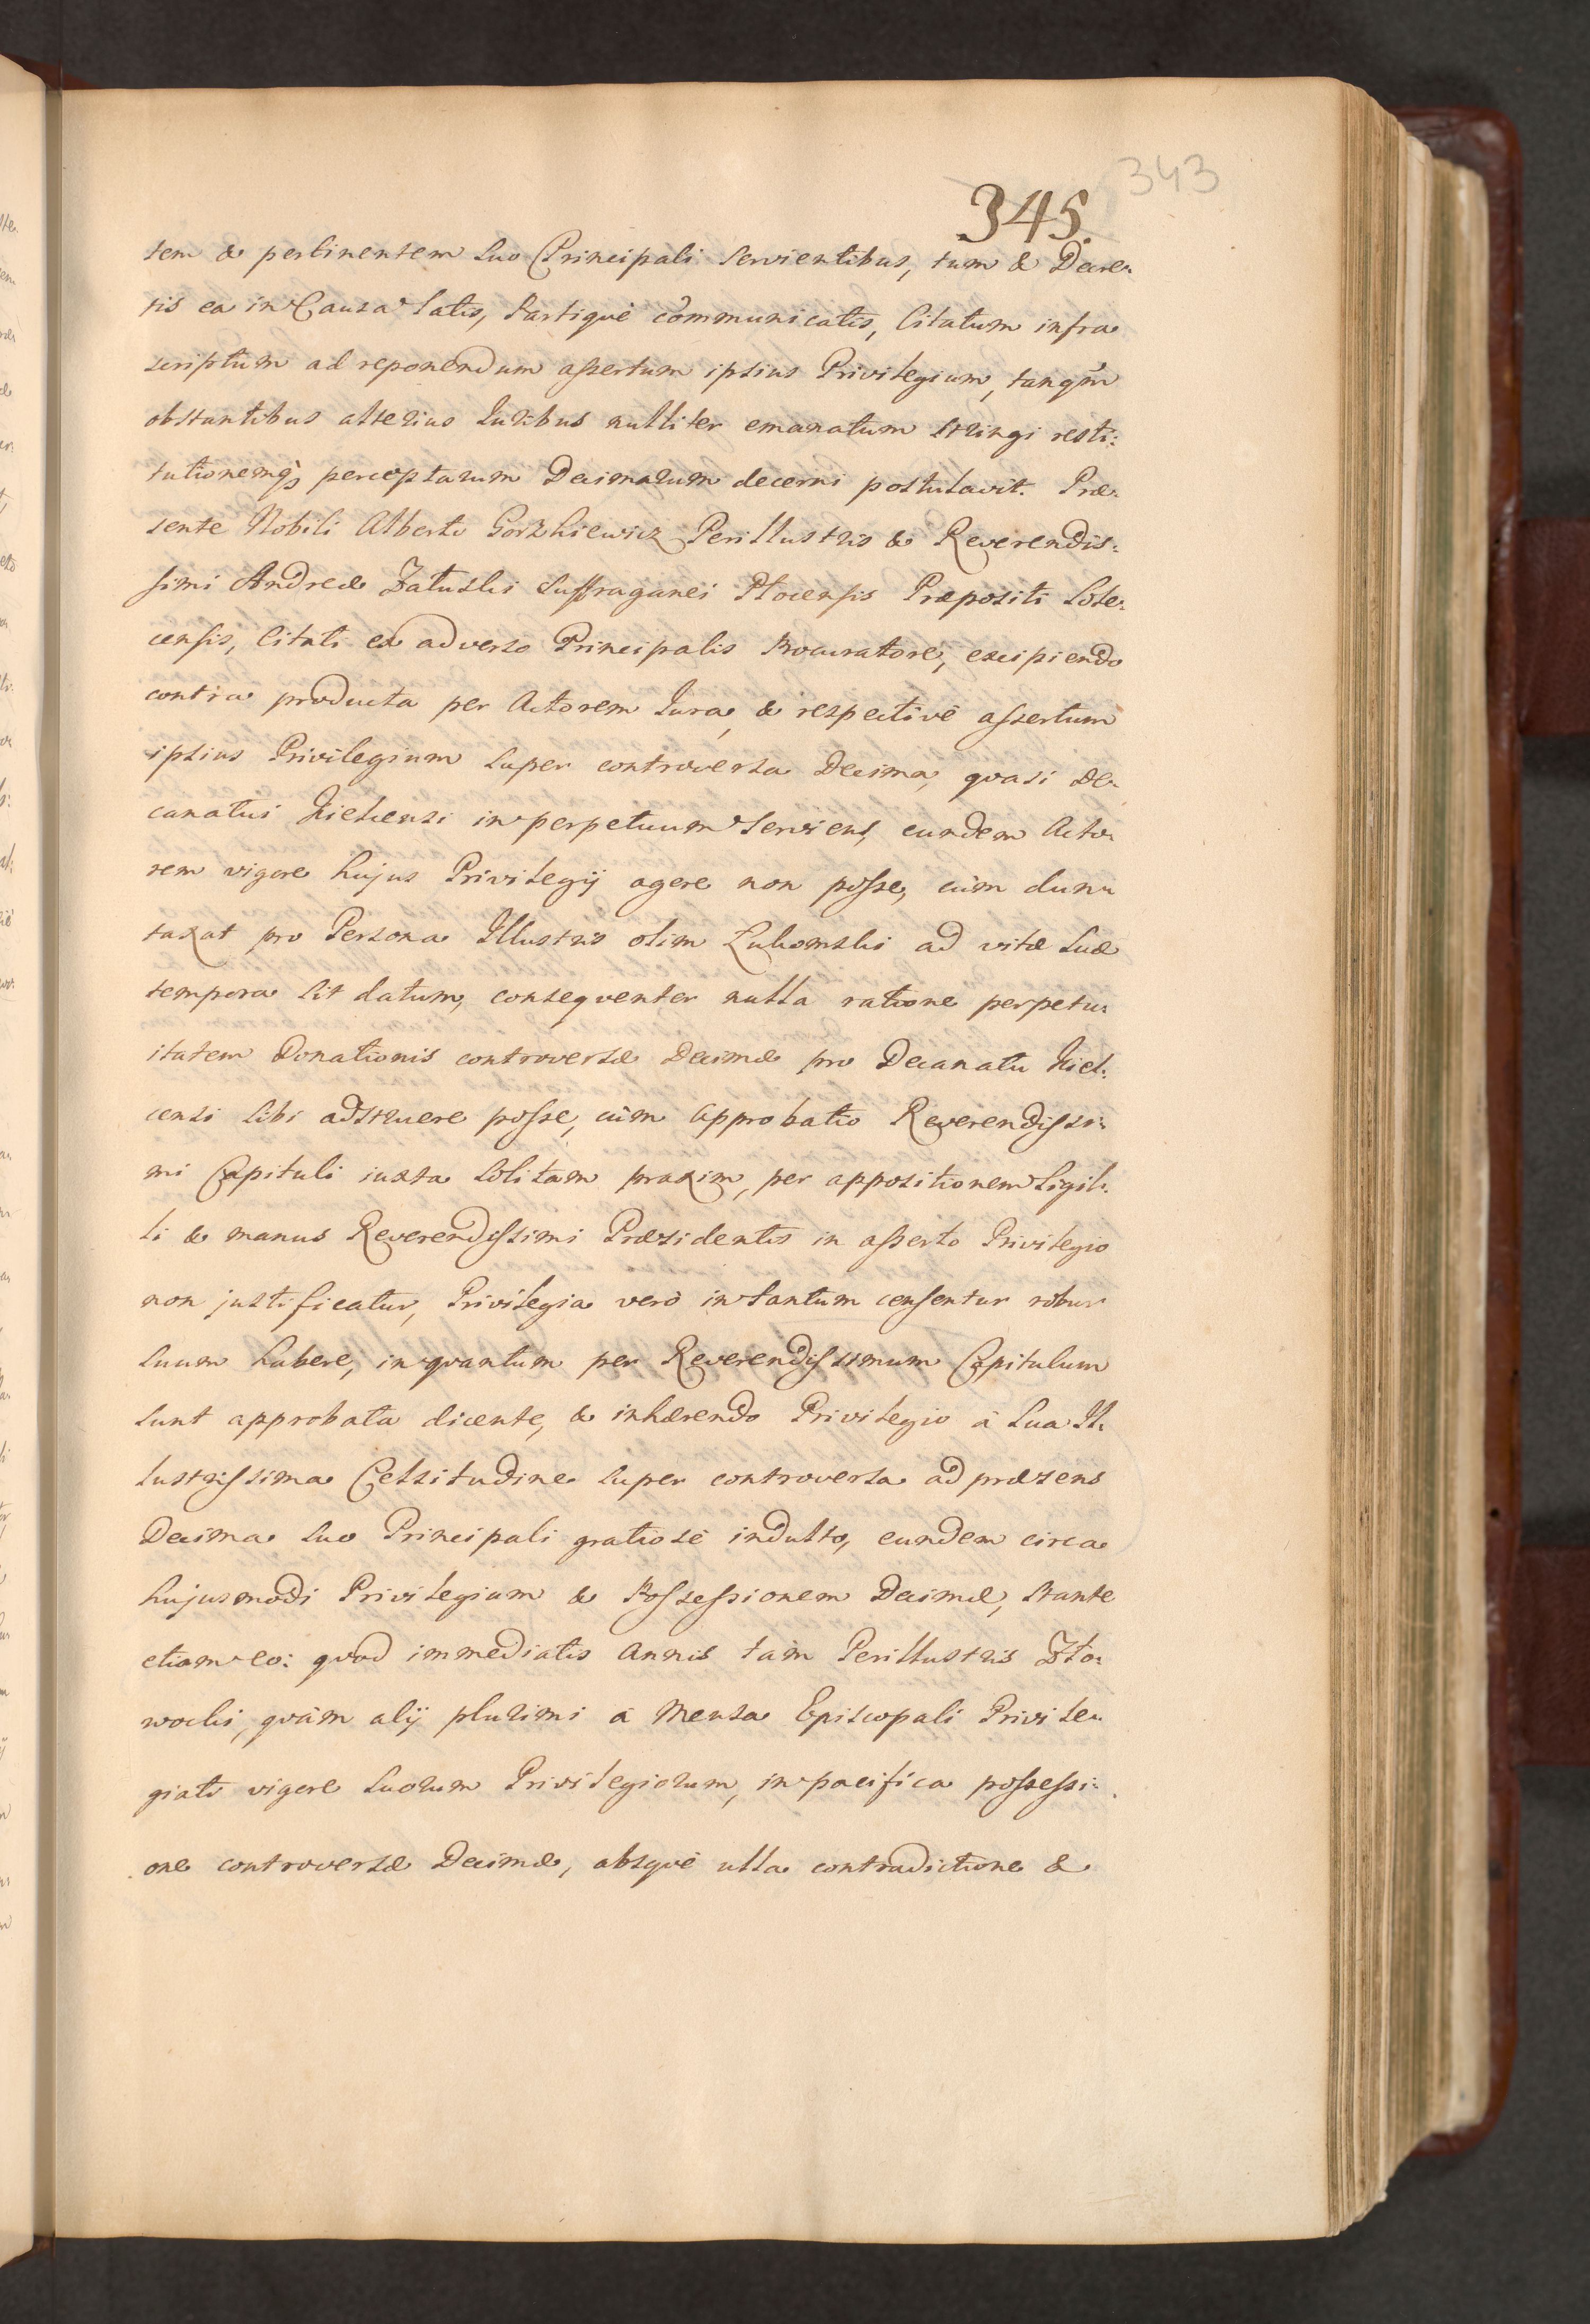 343
345.
tem & pertinentem suo Principali servientibus, tum & Decre-
tis ea in Causa latis, Partiqué cõmunicatis, Citatum infra
scriptum ad reponendum assertum ipsius Privilegium, tanqũm
obstantibus alterius Iuribus nulliter emanatum stringi resti:
tutionemq; perceptarum Decimarum decerni postulavit. Præ-
sente Nobili Alberto Gorzkiewicz Perillustris & Reverendis:
simi Andreæ Załuski Suffraganei Plocensis Præpositi Sole-
censis, Citati ex adverso Principalis Procuratore, excipiendo
contra producta per Actorem Iura, & respectivé assertum
ipsius Privilegium super controversa Decima, quasi De-
canatui Kielcensi in perpetuum serviens, eundem Acto-
rem vigore hujus Privilegij agere non posse, cùm dun-
taxat pro Persona Illustris olim Łukomski ad vitæ suæ
tempora sit datum, conseqventer nulla ratione perpetu-
itatem Donationis controversæ Decimæ pro Decanatu Kiel:
censi sibi adstruere posse, cùm approbatio Reverendissi:
mi Capituli iuxta solitam praxim, per appositionem Sigil-
li & manus Reverendissimi Præsidentis in asserto Privilegio
non justificatur, Privilegia verò in tantum censentur robur
suum habere, in qvantum per Reverendissimum Capitulum
sunt approbata dicente, & inhærendo Privilegio á Sua Il-
lustrissima Celsitudine super controversa ad præsens
Decima suo Principali gratiosé indulto, eundem circa
hujusmodi Privilegium & Possessionem Decimæ, stante
etiam eo: qvod immediatis Annis tàm Perillustris Zło-
wocki, qvàm alij plurimi á Mensa Episcopali Privile-
giati vigore suorum Privilegiorum, in pacifica possessi-
one controversæ Decimæ, absqvé ulla contradictione &